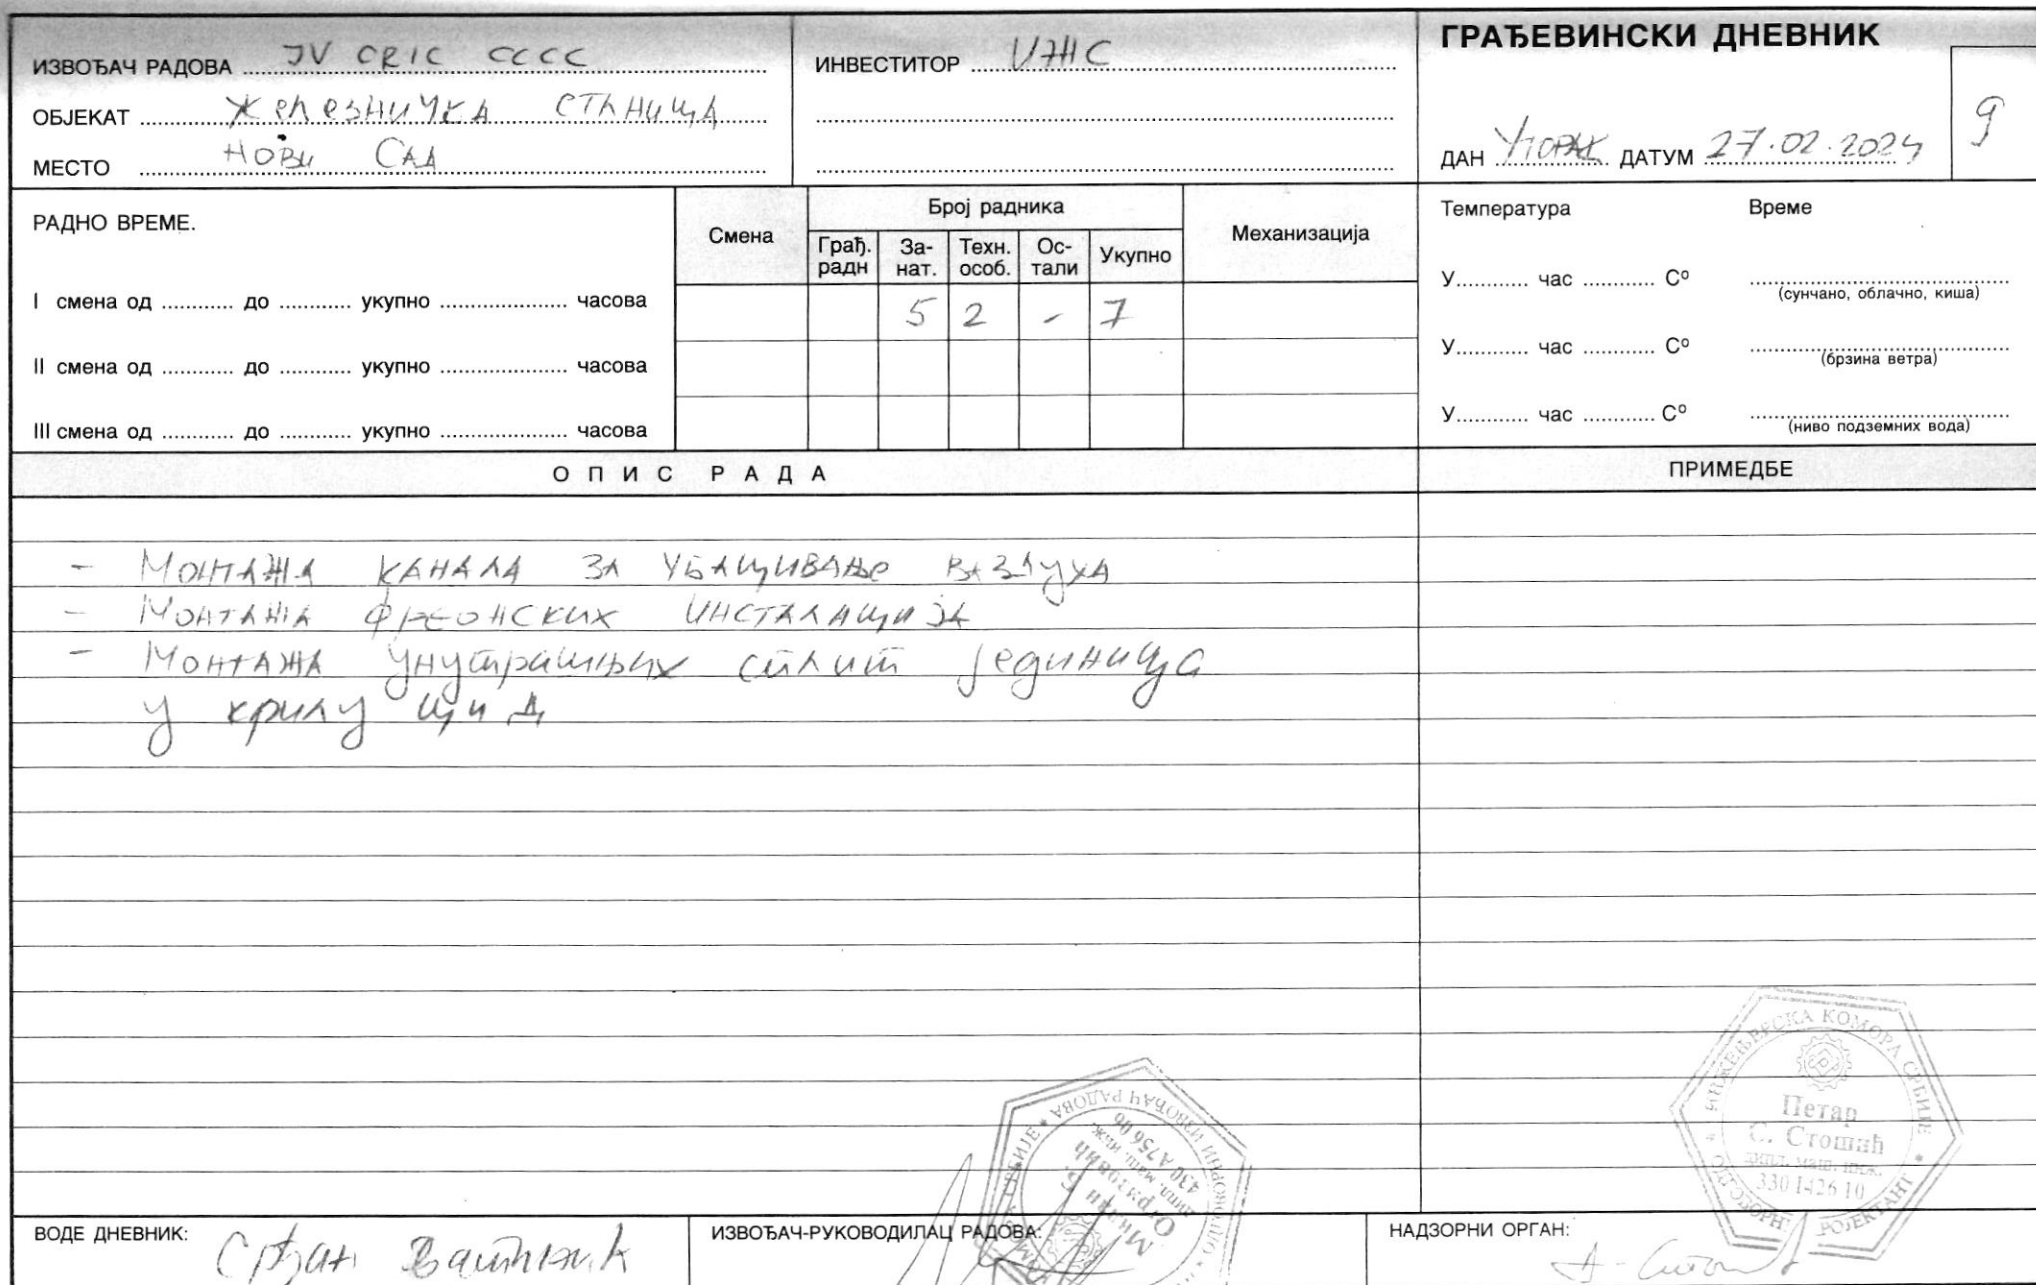 ИЗВОЂАЧ РАДОВА JV CRIC CCCC
ОБЈЕКАТ Железничка станица
МЕСТО Нови Сад
ИНВЕСТИТОР ИЖС
ГРАЂЕВИНСКИ ДНЕВНИК
9
ДАН Уторак ДАТУМ 27.02.2024
РАДНО ВРЕМЕ.
I смена од ............ до ............ укупно ............ часова
II смена од ............ до ............ укупно ............ часова
III смена од ............ до ............ укупно ............ часова
Смена
Број радника
Грађ. радн
За-нат.
Техн. особ.
Ос-тали
Укупно
Механизација
5 2 - 7
Температура Време
У............ час ............ Cº
(сунчано, облачно, киша)
У............ час ............ Cº
(брзина ветра)
У............ час ............ Cº
(ниво подземних вода)
ОПИС РАДА
ПРИМЕДБЕ
- Монтажа канала за убацивање ваздуха
- Монтажа фреонских инсталација
- Монтажа унутрашњих сплит јединица
у крилу Ц и Д
ИНЖЕЊЕРСКА КОМОРА СРБИЈЕ
Петар
С. Стошић
дипл. маш. инж.
330 1426 10
ОДГОВОРНИ ПРОЈЕКТАНТ
ОДГОВОРНИ ИЗВОЂАЧ РАДОВА
Милан Б.
дипл. маш. инж.
430 А756 06
ВОДЕ ДНЕВНИК: Срђан
ИЗВОЂАЧ-РУКОВОДИЛАЦ РАДОВА:
НАДЗОРНИ ОРГАН: